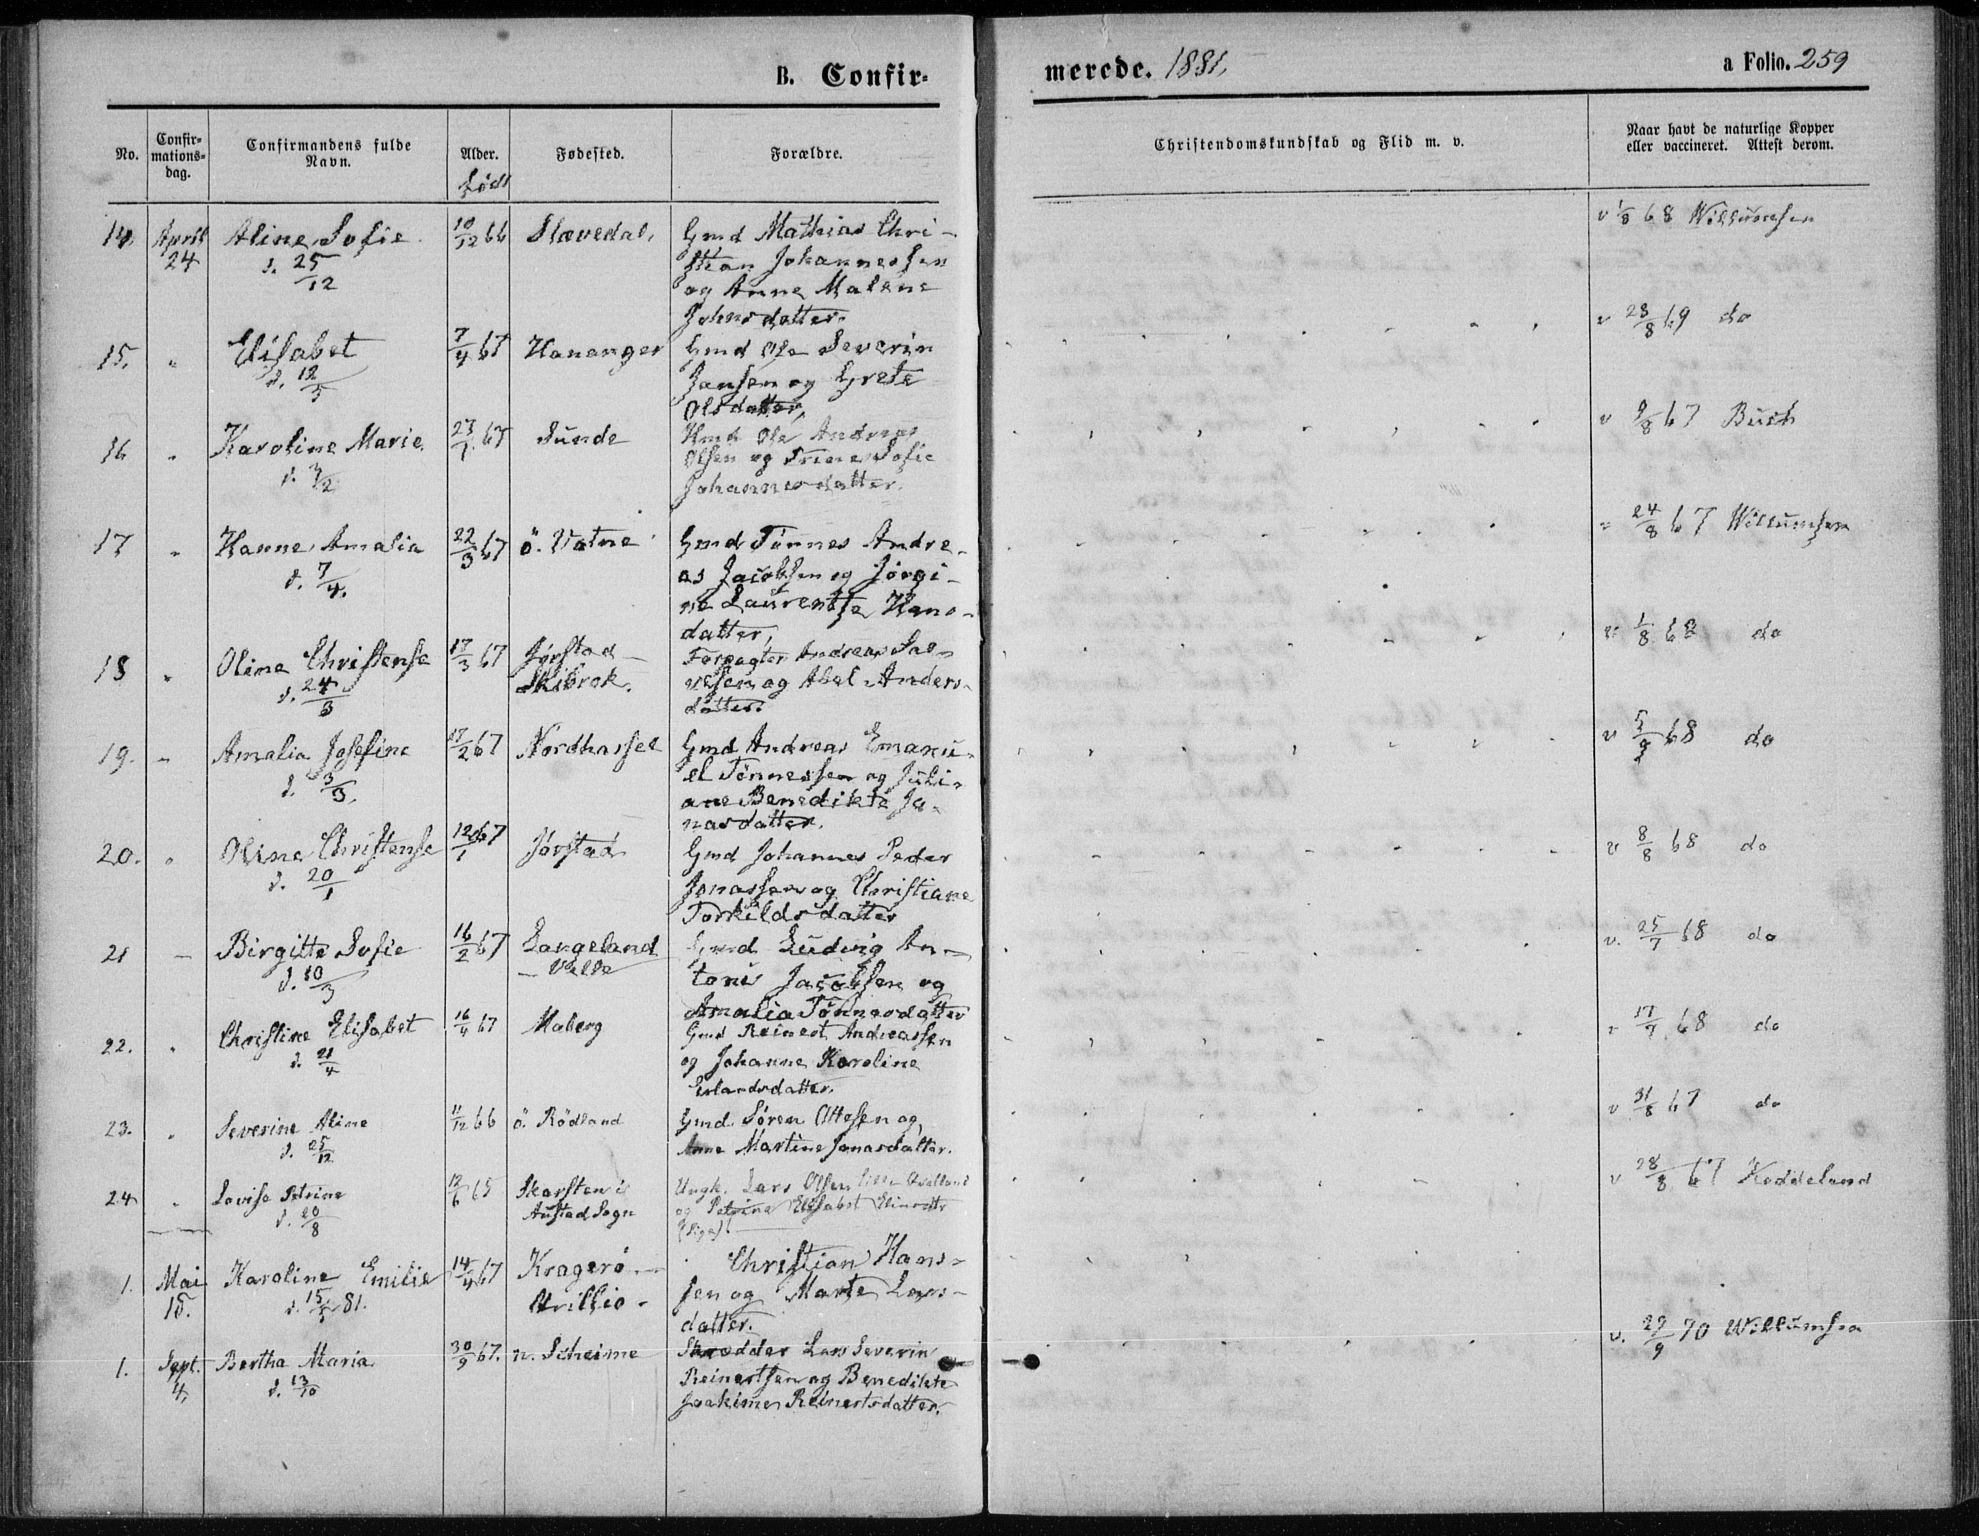 B. Confir-
merede. 1881.
a Folio. 259
No.
Confir-
mations-
dag.
Confirmandens fulde
Navn.
Alder.
Født
Fødested.
Forældre.
Christendomskundskab og Flid m. v.
Naar havt de naturlige Kopper
eller vaccineret. Attest derom.
14. April Aline Sofie 10/12 66 Slævedal, Gmd Mathias Chri-
24 d. 25/12 stian Johannessen
og Anne Malene
Johnsdatter.
v 1/8 68 Willumsen
15. " Elisabet 7/4 67 Hananger Gmd Ole Severin
d. 12/5 Jansen og Grete
Olsdatter,
v 23/8 69 do
16 " Karoline Marie. 23/1 67 Sunde Hmd Ole Andreas
d. 3/2 Olsen og Trine Sofie
Johannesdatter.
v 9/8 67 Bush
17 " Hanne Amalia 22/3 67 ö. Vatne Gmd Tönnes Andre-
d. 7/4. as Jacobsen og Jörgi-
ne Laurentse Hans-
datter,
" 24/8 67 Willumsen
18 " Oline Christense 17/3 67 Jørstad- Forpagter Andreas Sal-
d. 24/3 Skibrok. vesen og Abel Anders-
datter.
v 1/8 68 do
19. " Amalia Josefine 17/2 67 Nordhassel Gmd Andreas Emanu-
d. 3/3. el Tönnessen og Juli-
ane Benedikte Jo-
nasdatter.
v 5/9 68 do
20. " Oline Christense 12/1 67 Jørstad Gmd Johannes Peder
d. 20/1 Jonassen og Christiane
Torkildsdatter
v 8/8 68 do
21 — Birgitte Sofie 16/2 67 Langeland Gmd Ludvig An-
d. 10/3 — Velle toni Jacobsen og
Amalia Tønnesdatter
v. 25/7 68 do
22. " Christine Elisabet 16/4 67 Maberg Gmd Reinert Andreassen
d. 21/4 og Johanne Karoline
Erlandsdatter.
" 17/7 68 do
23. " Severine Aline 11/12 66 ö. Rödland Gmd Sören Ottesen og
d. 25/12 Anne Martine Jonasdatter.
v 31/8 67 do
24 " Lovise Petrine 12/6 65 Skarsten i Ungk. Lars Olsen lille
d. 20/8 Austad Sogn og Petrine Elisabet
v 28/8 67 Koddeland
1. Mai Karoline Emilie 14/4 67 Kragerö — Christian Hans-
15. d. 15/5 81. sen og Marte Lars-
datter.
1. Sept. Bertha Maria 30/9 67. n. Scheime Skrædder Lars Severin
4. d. 13/10 Reinertsen og Benedikte
Joakime Reinertsdatter.
v. 29/9 70 Willumsen